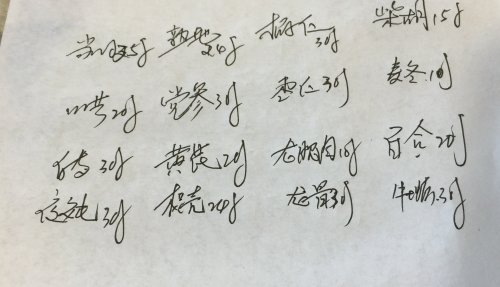 当归25g 熟地24g 柏仁30g 柴胡15g
川芎20g 党参30g 枣仁30g 麦冬10g
白芍30g 黄芪20g 龙眼肉10g 百合20g
枳壳24g 龙骨30g 牡蛎30g